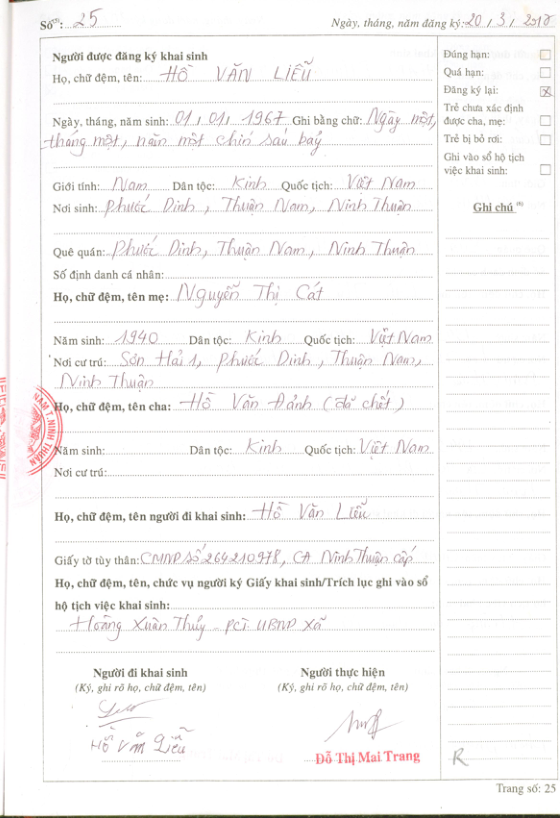 Số: 25
Ngày, tháng, năm đăng ký: 20/3/2018
Người được đăng ký khai sinh
Họ, chữ đệm, tên: HỒ VĂN LIỄU
Ngày, tháng, năm sinh: 01/01/1967 Ghi bằng chữ: Ngày một,
tháng một, năm một chín sáu bảy
Giới tính: Nam Dân tộc: Kinh Quốc tịch: Việt Nam
Nơi sinh: Phước Dinh, Thuận Nam, Ninh Thuận
Quê quán: Phước Dinh, Thuận Nam, Ninh Thuận
Số định danh cá nhân:
Họ, chữ đệm, tên mẹ: Nguyễn Thị Cát
Năm sinh: 1940 Dân tộc: Kinh Quốc tịch: Việt Nam
Nơi cư trú: Sơn Hải 1, Phước Dinh, Thuận Nam,
Ninh Thuận
Họ, chữ đệm, tên cha: Hồ Văn Đảnh (đã chết)
Năm sinh: Dân tộc: Kinh Quốc tịch: Việt Nam
Nơi cư trú:
Họ, chữ đệm, tên người đi khai sinh: Hồ Văn Liễu
Giấy tờ tùy thân: CMND số 264210978, CA Ninh Thuận cấp
Họ, chữ đệm, tên, chức vụ người ký Giấy khai sinh/Trích lục ghi vào sổ
hộ tịch việc khai sinh:
Hoàng Xuân Thủy - PCT. UBND xã
Người đi khai sinh
(Ký, ghi rõ họ, chữ đệm, tên)
Hồ Văn Liễu
Người thực hiện
(Ký, ghi rõ họ, chữ đệm, tên)
Đỗ Thị Mai Trang
Đúng hạn:
Quá hạn:
Đăng ký lại: x
Trẻ chưa xác định
được cha, mẹ:
Trẻ bị bỏ rơi:
Ghi vào sổ hộ tịch
việc khai sinh:
Ghi chú
R
NAM T. NINH THUẬN
Trang số: 25